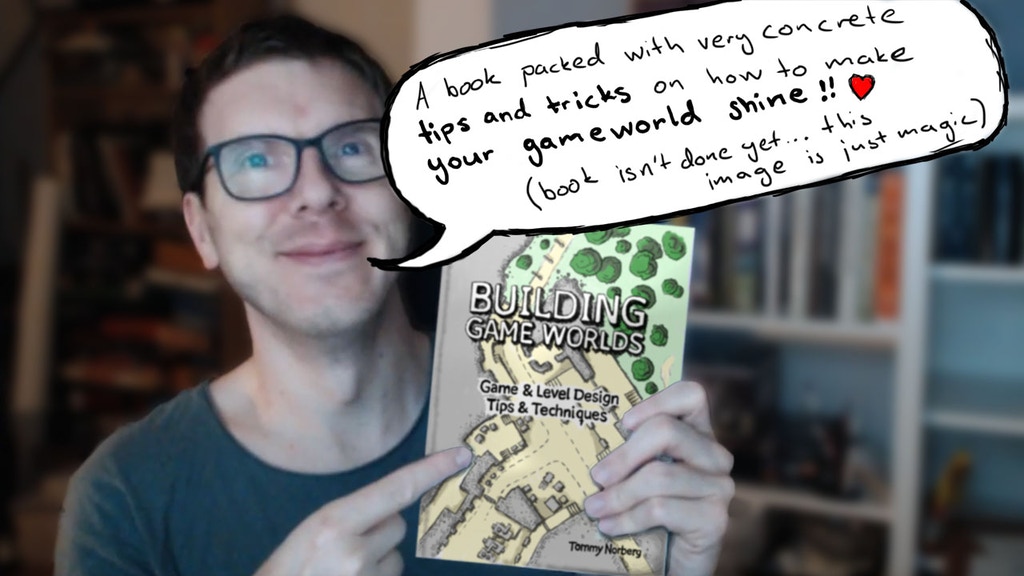 A book packed with very concrete
tips and tricks on how to make
your gameworld shine!! ❤
(book isn't done yet... this
image is just magic)
BUILDING
GAME WORLDS
Game & Level Design
Tips & Techniques
Tommy Norberg